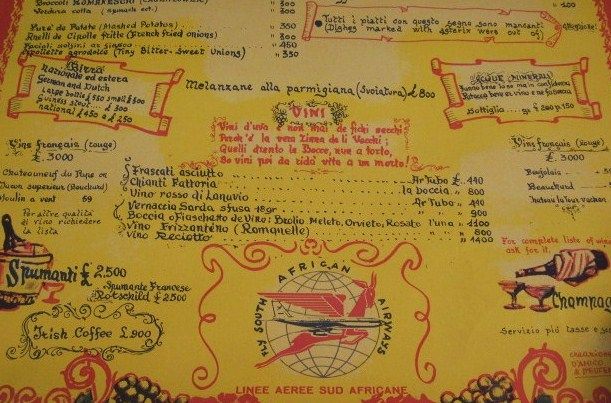 Broccoli ROMANESCHI
Verdura cotta
Purè de Patate (Mashed Potatos) 350
Anelli de Cipolle fritte (French fried onions) 300
450
Cipollette agrodolce (Tiny Bitter-Sweet Onions) 350
Tutti i piatti con questo segno sono mancanti
(Dishes marked with asterix were out of)
Birra
Nazionale ed estera
German and Dutch
Large bottle £ 550 small £ 300
Guiness stout £ 300
national £ 450 a £ 250
Melanzane alla parmigiana (Svoiatura) £ 800
ACQUE MINERALI
Bottiglia gr £ 200 p 150
VINI
Vini d'uva e non mai de fichi secchi
Perch'è la vera Zinna de li Vecchi;
Quelli drento le Bocce, nun a torto,
So vini poi da ridà vita a un morto!
Vins français (rouge)
£. 3000
Chateauneuf du Pape
Moulin a vent 59
Per altre qualità
di vino richiedere
la lista
Frascati asciutto Ar Tubo £. 440
Chianti Fattoria " " 440
Vino rosso di Lanuvio la boccia " 800
Vernaccia Sarda sfusa 18gr Ar Tubo " 440
Boccia o Fiaschetto de Vino: Brolio Meleto, Orvieto, Rosato l'una " 1100
Vino Frizzantino (Romanelle) " " 800
Vino Reciotto " " 1400
Vins français (rouge)
£. 3000
Beaujolais
For complete liste of wine
ask for it.
Spumanti £ 2,500
Spumante Francese
Rotschild £ 2500
Irish Coffee £ 900
FLY SOUTH AFRICAN AIRWAYS
LINEE AEREE SUD AFRICANE
Champag
Servizio più tasse e
D'AMICO